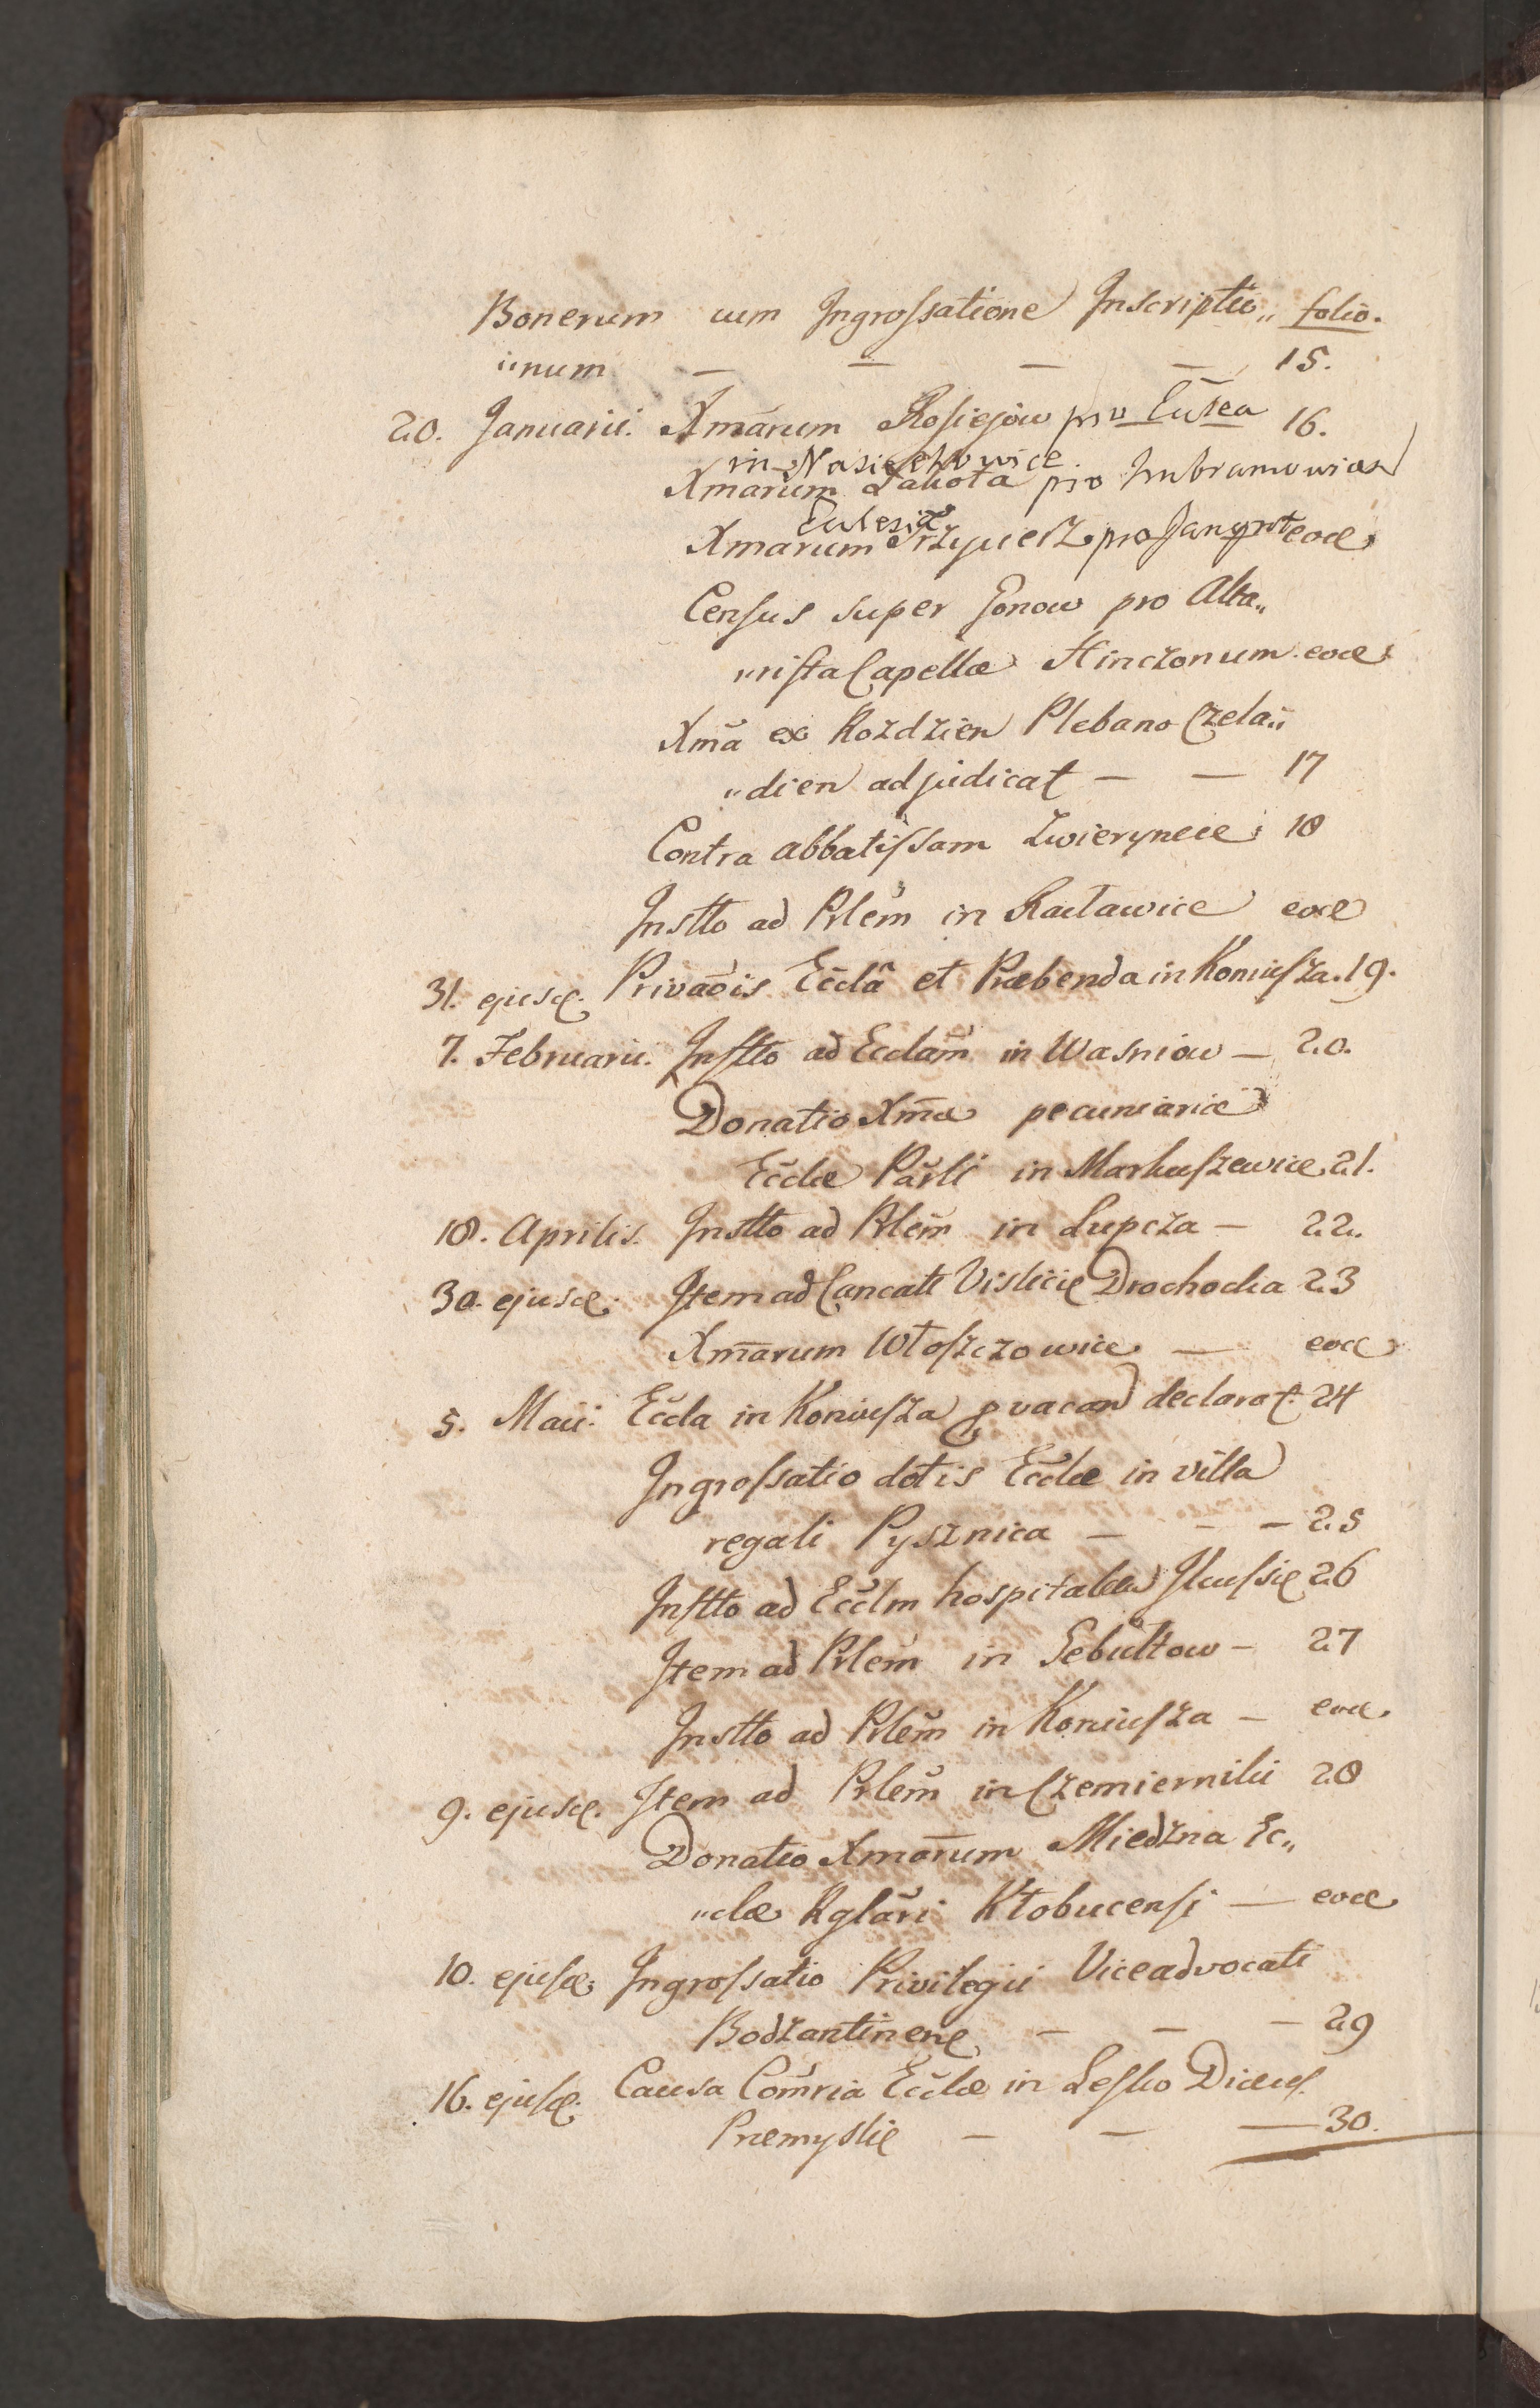 Bonerum cum Ingroſsatione Inscriptio„ folio.
„num — — — — 15.
20. Januarii. Xmārum Rosiejow pro Eccĺea 16.
in Nasiechowice
Xmarum Łakota pro Imbramowice
Ecclesiæ
Xmarum Trzycież pro Jangrot eod.
Censuſ super Gonow pro Alta„
„riſta Capellæ Hinczonum eod.
Xmā ex Rozdzień Plebano Czela„
„dień adjudicat — — 17
Contra abbatiſsam Zwierynece 18
Instto ad Prlēm in Racławice eod
31. ejusd. Privāōis Ecclā et Præbenda in Koniuſza. 19.
7. Februarii. Inſtto ad Ecclam̄ in Wasniow — 20.
Donatio Xm̄a pecuniariæ
Ecclæ Parli in Markuſzewice 21.
18. Aprilis. Instto ad Prlēm in Lupcza — 22.
30. ejusd. Item ad Cancalt Vislicię Drochocka 23
Xm̄arum Włoſzczowice — eod
5. Maii. Eccla in Koniuſza p vacan declarat. 24
Ingroſsatio dotis Ecclæ in villa
regali Pysznica — - — 25
Inſtto ad Ecclm hospitalem Ilkuſię 26
Item ad Prlēm in Gebułtow — 27
Instto ad Prlēm in Koniuſza — eod.
9. ejusd. Item ad Prlēm in Czemierniki 28
Donatio Xmārum Miedzna Ec„
„clæ Rglāri Kłobucenſi — eod
10. ejuſd. Ingroſsatio Privilegii Viceadvocati
Bodzantinenę — — — 29
16. ejuſd. Causa Com̄ria Ecclæ in Leſko Diæceſ.
Premyslię — — — 30.